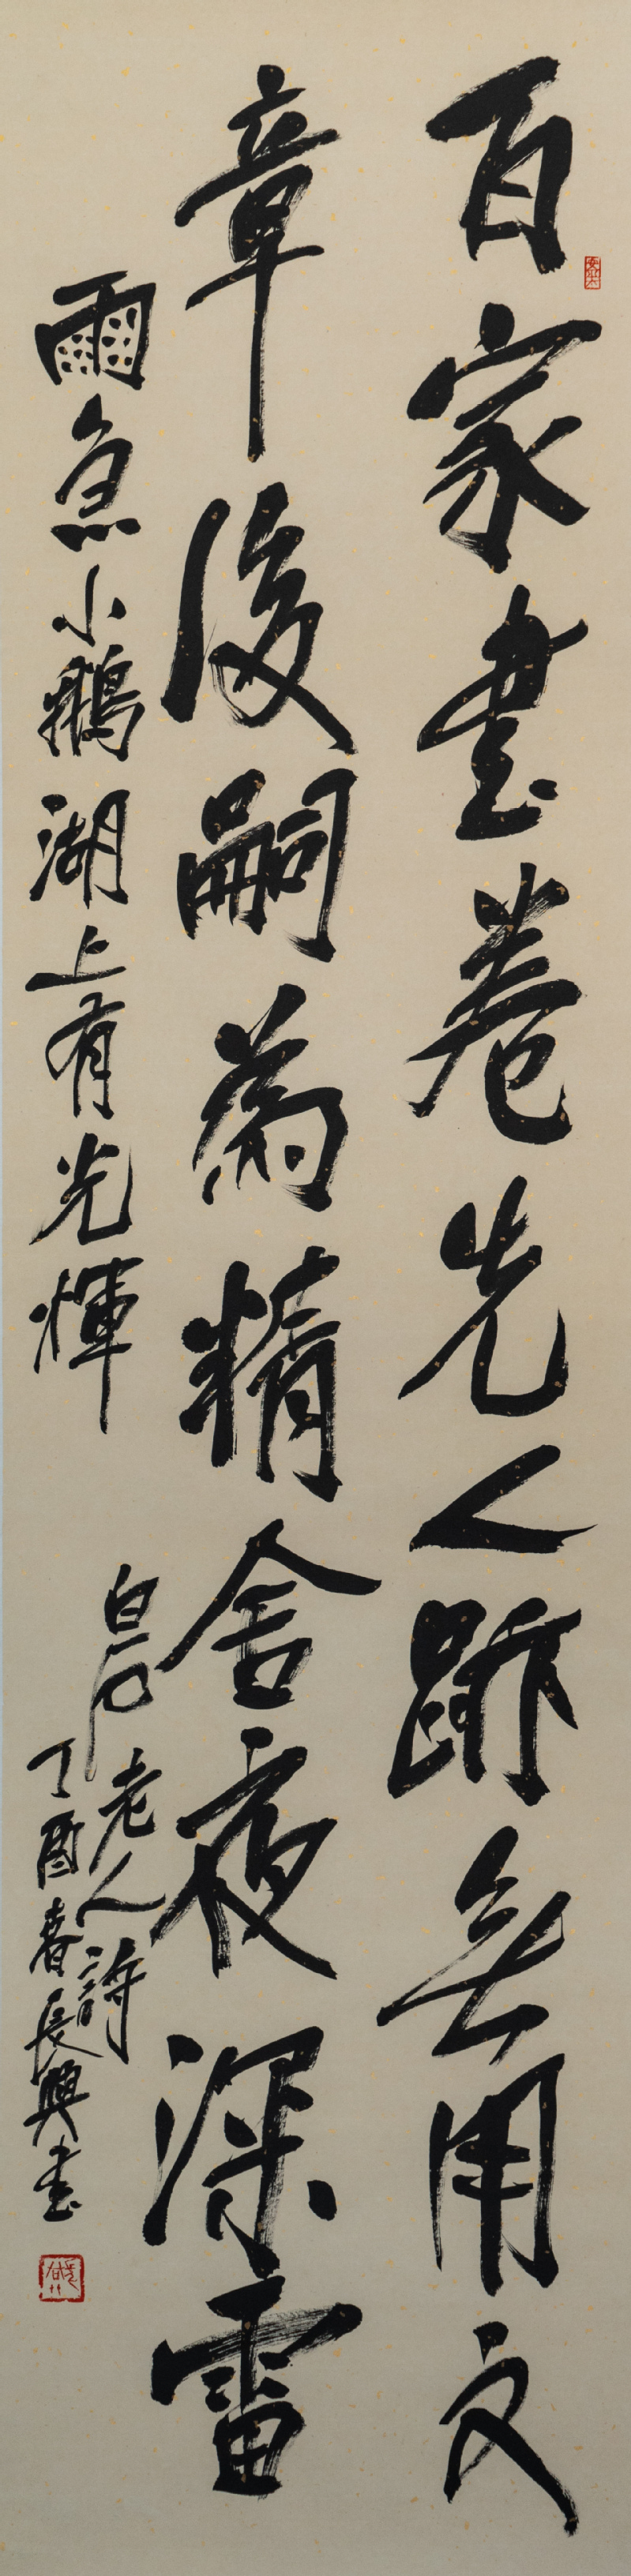 百家書卷先人蹟無用文
章後嗣為精舍夜深雷
雨急小鵝湖上有光輝
白石老人詩
丁酉春長興書